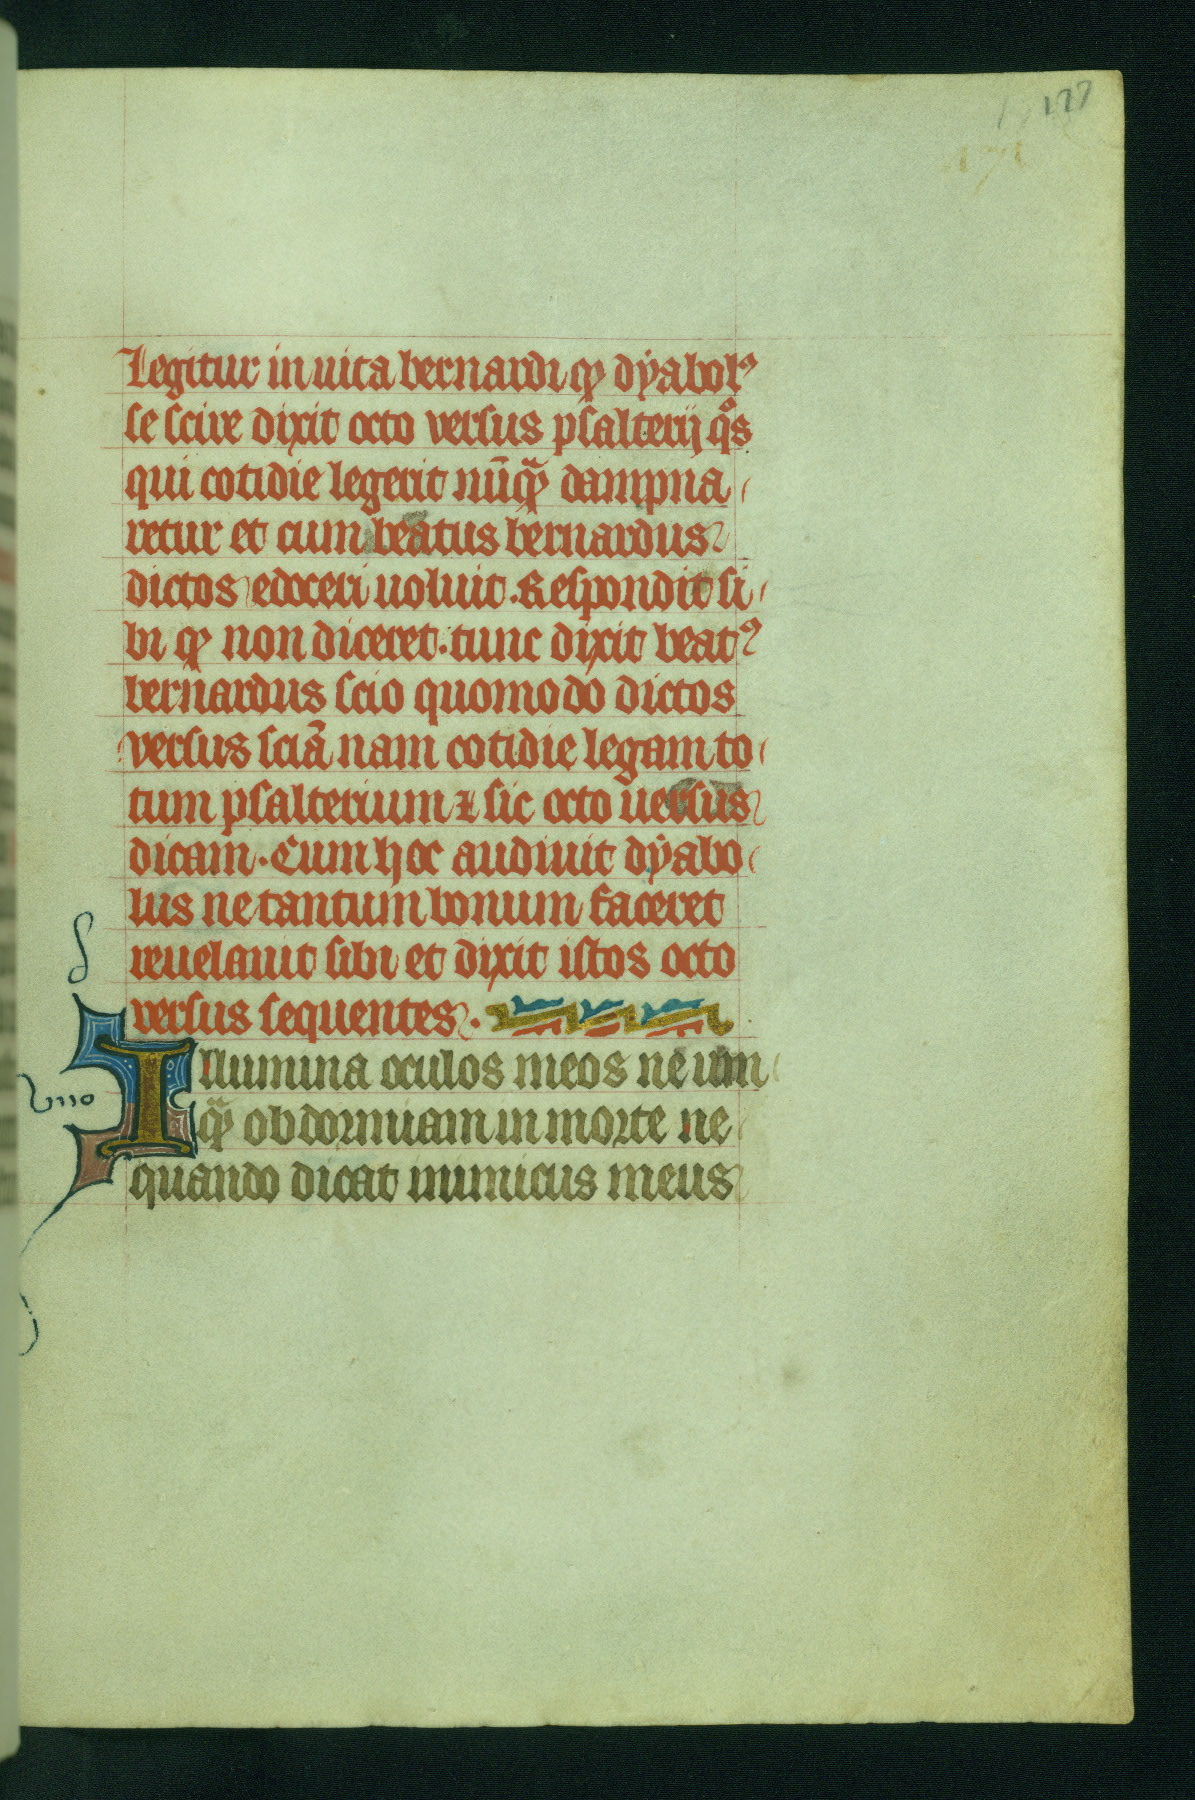 177
Legitur in uita bernardi ꝙ dẏabolꝰ
se scire dixit octo versus psalterij qͦs
qui cotidie legerit nū̄qᷓ dampna
retur et cum beatus bernardus
dictos edoceri uoluit. Respondit si
bi ꝙ non diceret. tunc dixit beatꝰ
bernardus scio quomodo dictos
versus sciā nam cotidie legam to
tum psalterium ⁊ sic octo uersus
dicam. Cum hoc audiuit dẏabo
lus ne tantum bonum faceret
reuelauit sibi et dixit istos octo
versus sequentes.
Illumina oculos meos ne um
qᷓ obdormiam in morte ne
quando dicat inimicus meus